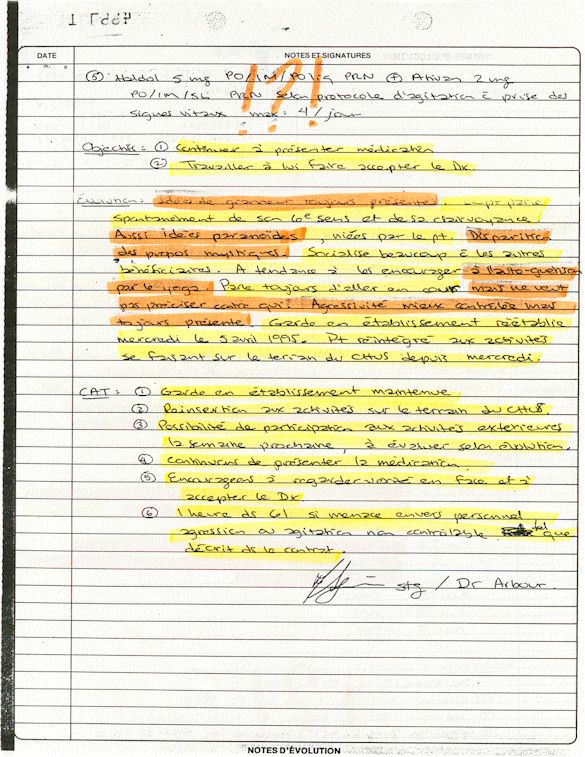 DATE
NOTES ET SIGNATURES
!?!
⑤ Haldol 5 mg PO/IM/PO liq PRN ⊕ Ativan 2 mg
PO/IM/SL PRN selon protocole d'agitation c̄ prise des
signes vitaux max: 4/jour
Objectifs: ① Continuer à présenter médication
② Travailler à lui faire accepter le Dx.
Évolution: Idées de grandeur toujours présentes
spontanément de son 6e sens et de sa clairvoyance
Aussi idées paranoïdes, niées par le pt. Disparition
des propos mystiques. Socialise beaucoup c̄ les autres
bénéficiaires. A tendance à les encourager à l'auto-guérison
par le yoga. Parle toujours d'aller en cour mais ne veut
pas préciser contre qui. Agressivité mieux contrôlée mais
toujours présente. Garde en établissement réétablie
mercredi le 5 avril 1995. Pt réintégré aux activités
se faisant sur le terrain du CHUS depuis mercredi.
CAT: ① Garde en établissement maintenue
② Réinsertion aux activités sur le terrain du CHUS
③ Possibilité de participation aux activités extérieures
la semaine prochaine, à évaluer selon évolution.
④ Continuons de présenter la médication.
⑤ Encourageons à regarder vérité en face et à
accepter le Dx
⑥ 1 heure ds 61 si menace envers personnel
agression ou agitation non contrôlable tel que
décrit ds le contrat.
stg / Dr Arbour.
NOTES D'ÉVOLUTION